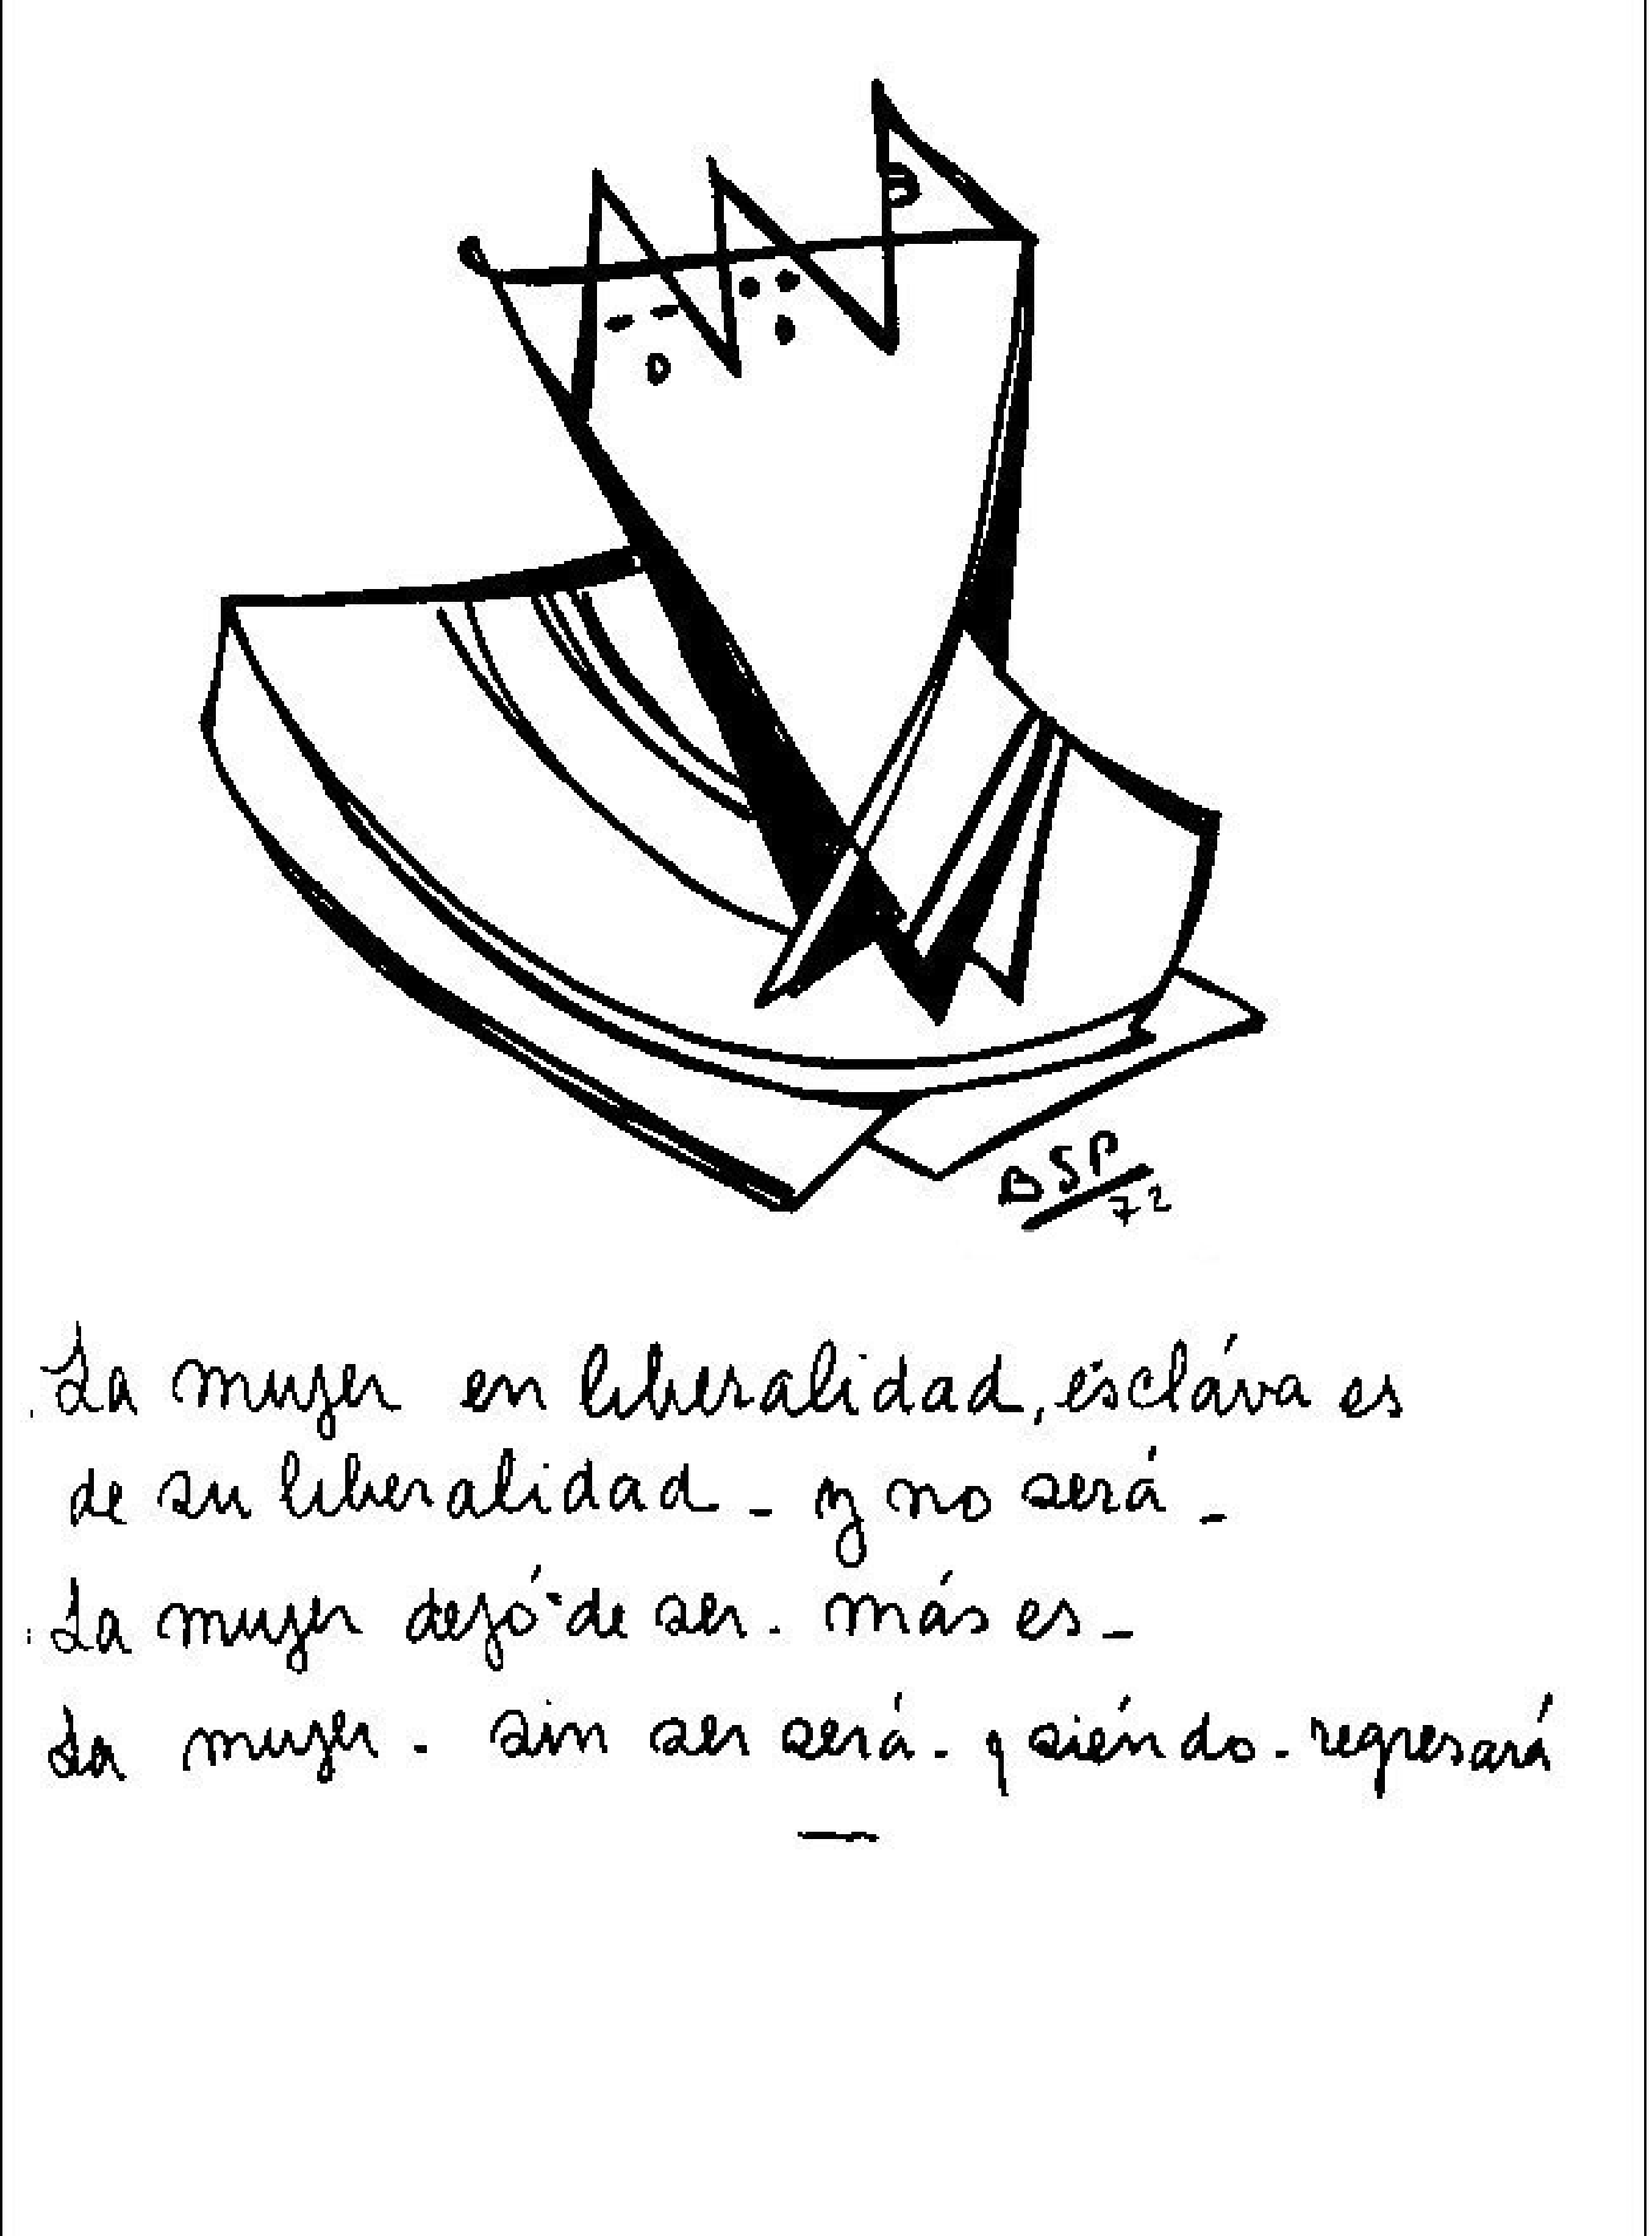 BSP
72
La mujer en liberalidad, escláva es
de su liberalidad - y no será -
La mujer dejó de ser. más es -
La mujer - sin ser será - y siéndo - regresará